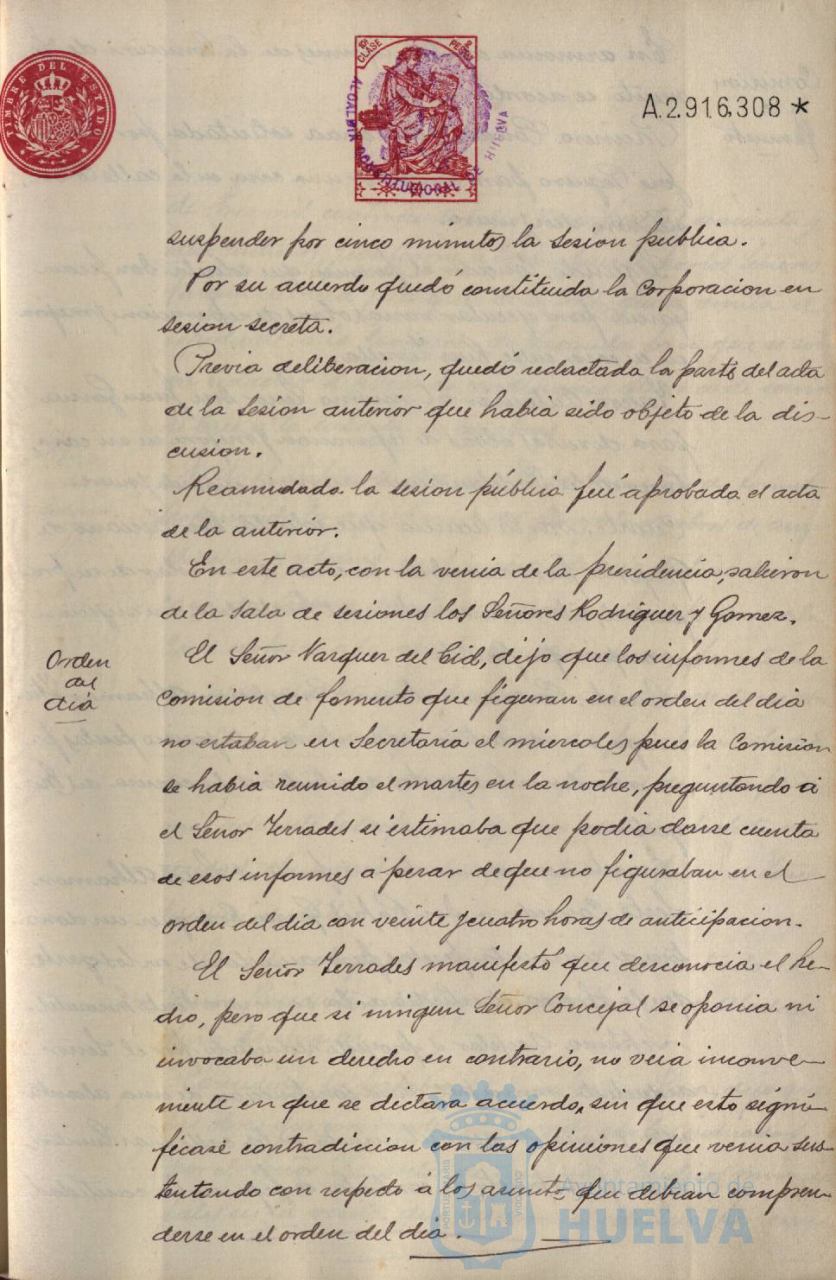 TIMBRE DEL ESTADO
10ª CLASE 2 PESETAS
ALCALDIA CONSTITUCIONAL DE HUELVA
A.2.916.308 *
suspender por cinco minutos la sesion publica.
Por su acuerdo quedó constituida la Corporacion en
sesion secreta.
Previa deliberacion, quedó redactada la parte del acta
de la sesion anterior que habia sido objeto de la dis-
cusion.
Reanudada la sesion pública fué aprobada el acta
de la anterior.
En este acto, con la venia de la presidencia, salieron
de la Sala de sesiones los Señores Rodriguez y Gomez.
Orden
del
dia
El Señor Vazquez del Cid, dijo que los informes de la
Comision de fomento que figuran en el orden del dia
no estaban en Secretaria el miercoles pues la Comision
se habia reunido el martes en la noche, preguntando á
el Señor Terrades si estimaba que podia darse cuenta
de esos informes á pesar de que no figuraban en el
orden del dia con veinte y cuatro horas de anticipacion.
El Señor Terrades manifestó que desconocia el he-
cho, pero que si ningun Señor Concejal se oponia ni
invocaba un derecho en contrario, no veia inconve-
niente en que se dictara acuerdo, sin que esto signi-
ficase contradiccion con las opiniones que venia sus-
tentando con respecto á los asuntos que debian compren-
derse en el orden del dia.
Ayuntamiento de
HUELVA